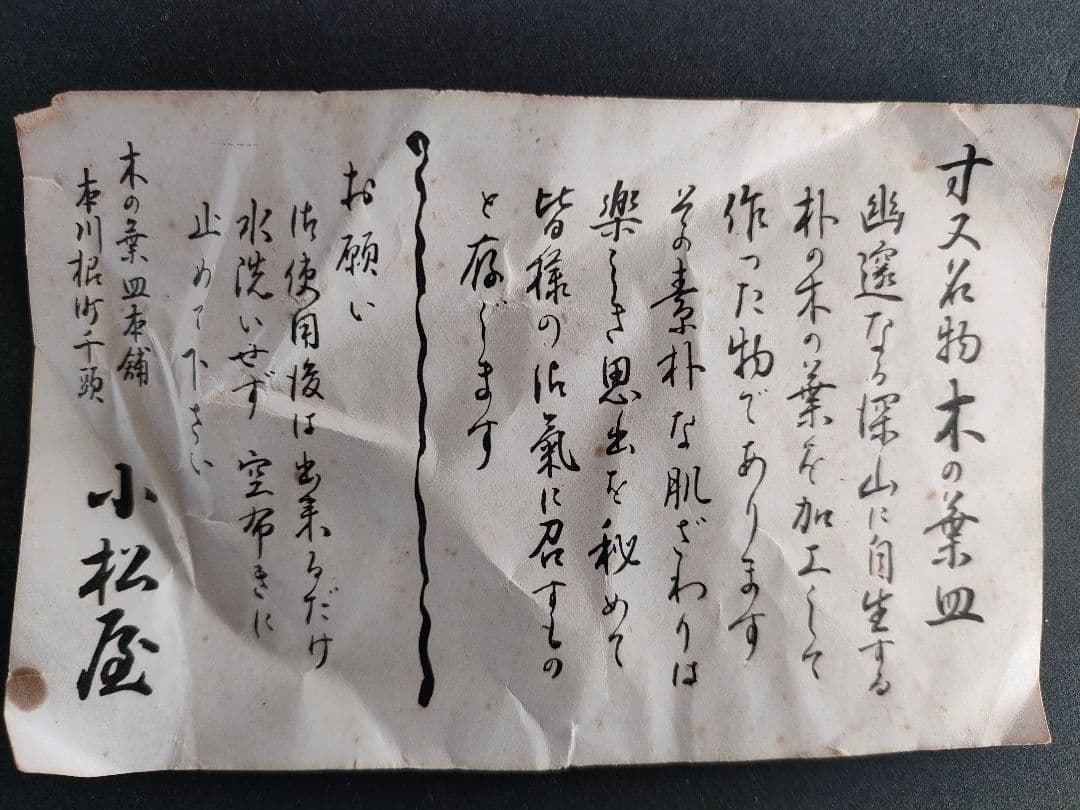 寸又名物木の葉皿
幽邃なる深山に自生する
朴の木の葉を加工して
作った物であります
その素朴な肌ざわりは
楽しき思出を秘めて
皆様の御氣に召すもの
と存じます
お願い
御使用後は出来るだけ
水洗いせず空布きに
止めて下さい
木の葉皿本舗
本川根町千頭
小松屋